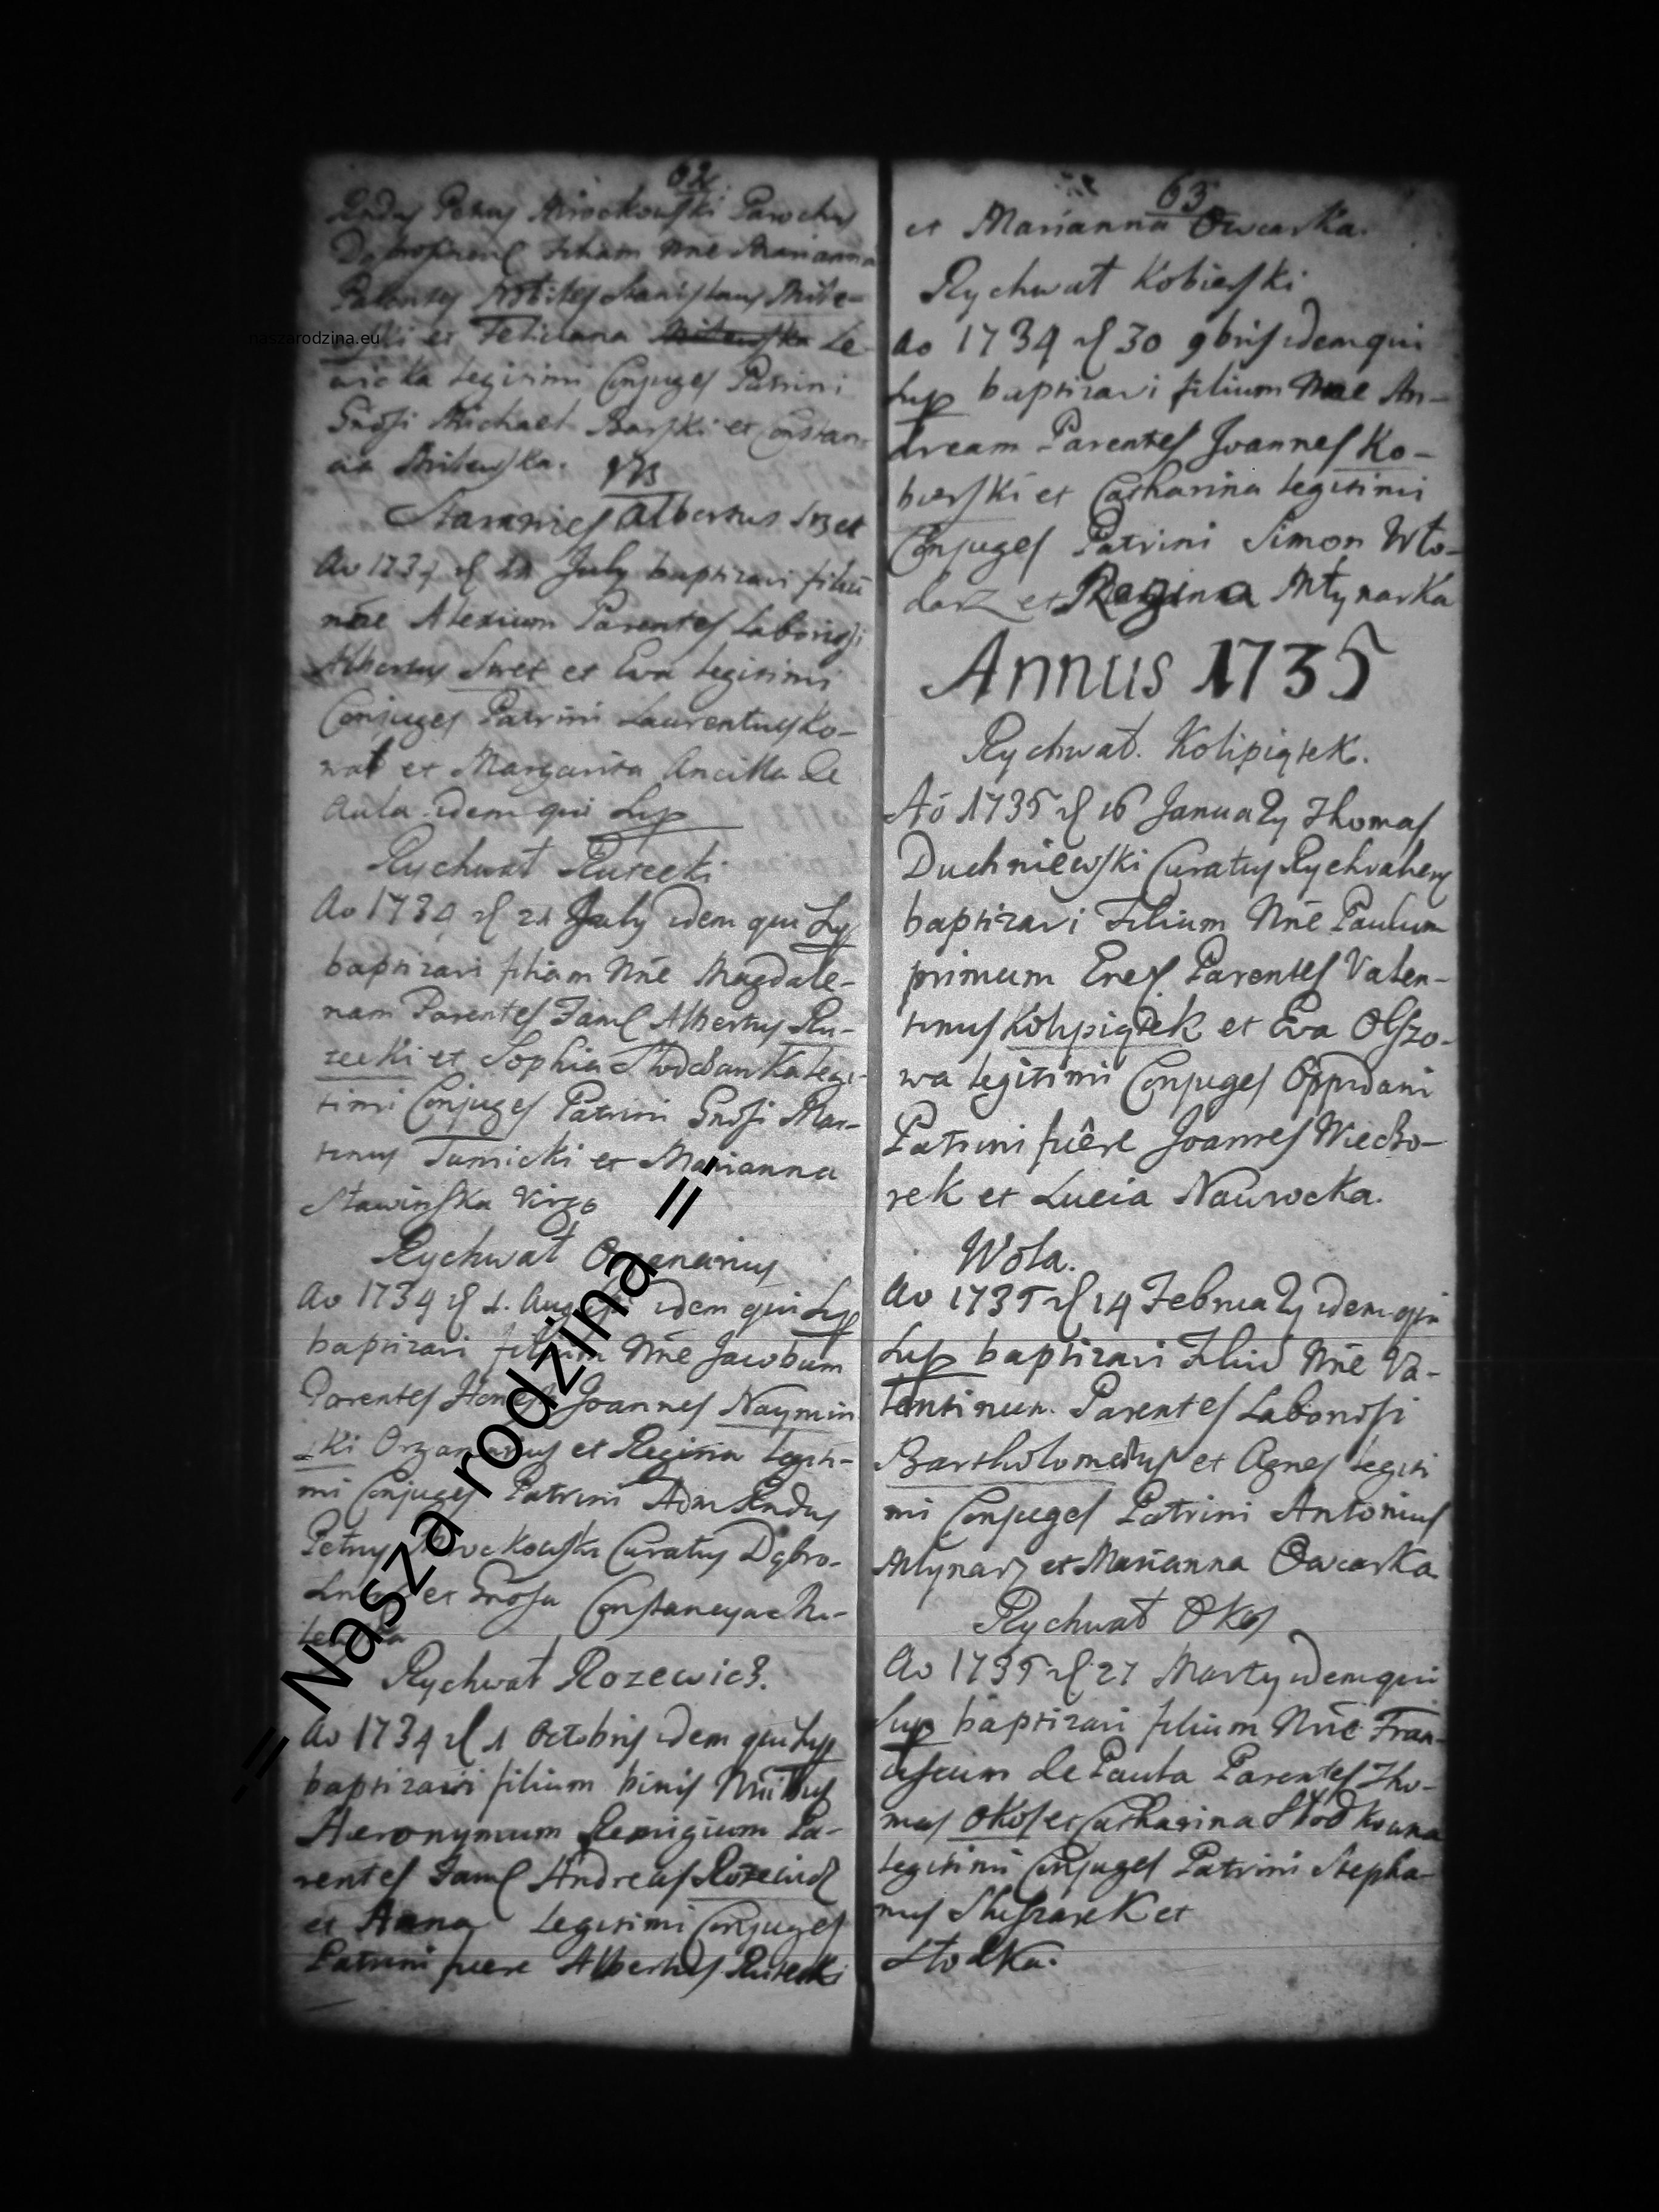 62
Petrus Parochus
Filiam Nne Mariannā
Parentes Nobiles Stanislaus
et Feliciana Le-
wicka Legitimi Conjuges Patrini
Gnosi Michael Barski et Constan-
cia
Albertus
Ao 1734 July baptizavi filiū
nōe Alexium Parentes Laboriosi
Albertus Swet et Eva Legitimi
Conjuges Patrini Laurentius Ko-
wal et Margarita Ancilla de
Aula idem qui Sup
Rychwał Rurecki
Ao 1734 d 21 July idem qui Sup
baptizavi filiam Nne Magdale-
nam Parentes Faml Albertus Ru-
recki et Sophia Legi-
timi Conjuges Patrini Gnosi Mar-
tinus Tumicki et Marianna
Sławińska Virgo
Rychwał Organarius
Ao 1734 d 1. Augusti idem qui Sup
baptizavi filium Nne Jacobum
Parentes Honest Joannes Naymin
ski Organarius et Regina Legiti-
mi Conjuges Patrini Adm Rndus
Petrus Curatus Dąbro-
et Gnosa Constancya
Rychwał Rozewicz.
Ao 1734 d 1 Octobris idem qui Sup
baptizavi filium binis Nnibus
Hieronymum Remigium Pa-
rentes Faml Andreas Rozewicz
et Anna Legitimi Conjuges
Patrini fuere Albertus Rurecki
63
et Marianna Owcarka.
Rychwał Kobierski
Ao 1734 d 30 9bris idem qui
Sup baptizavi filium Nne An-
dream Parentes Joannes Ko-
bierski et Catharina Legitimi
Conjuges Patrini Simon Wło-
darz et Regina Młynarka
Annus 1735
Rychwał. Kolipiątek.
Aō 1735 d 16 January Thomas
Duchniewski Curatus Rychvalien
baptizavi Filium Nne Paulum
primum Erem Parentes Valen-
tinus Kolipiątek et Eva Olszo-
wa legitimi Conjuges Oppidani
Patrini fuêre Joannes Wieczo-
rek et Lucia Nawrocka.
Wola.
Ao 1735 d 14 February idem qui
Sup baptizavi Filiū Nne Va-
lentinum. Parentes Laboriosi
Bartholomæus et Agnes Legiti
mi Conjuges Patrini Antonius
Młynarz et Marianna Owcarka
Rychwał Okos
Ao 1735 d 27 Marty idem qui
Sup baptizavi filium Nne Fran-
ciscum de Paula Parentes Tho-
mas Okos et Catharina
Legitimi Conjuges Patrini Stepha-
nus et
Słodka.
naszarodzina.eu
-= Nasza rodzina =-